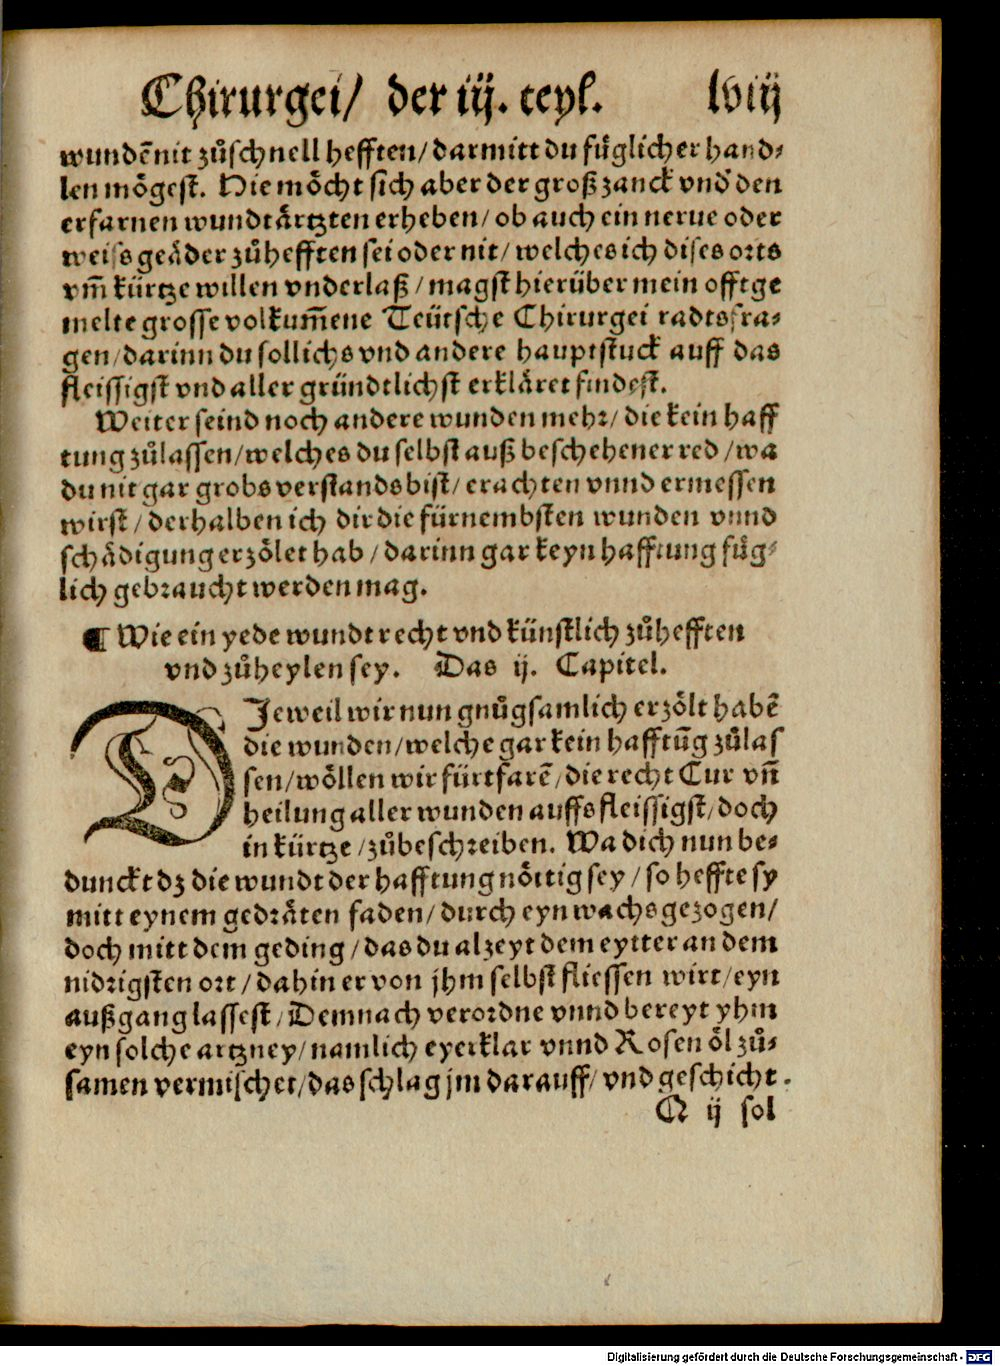 Chirurgei/ der iij. teyl. lviij
wundẽ nit zůschnell hefften/ darmitt du fůglicher hand⸗
len mögest. Hie möcht sich aber der groß zanck vnd den
erfarnen wundtärtzten erheben/ ob auch ein nerue oder
weiss geäder zůhefften sei oder nit/ welches ich dises orts
vm̃ kürtze willen vnderlaß/ magst hierüber mein offtge
melte grosse volkum̃ene Teütsche Chirurgei radtsfra⸗
gen/ darinn du sollichs vnd andere hauptstuck auff das
fleissigst vnd aller gründtlichst erkläret findest.
Weiter seind noch andere wunden mehr/ die kein haff
tung zůlassen/ welches du selbst auß beschehener red/ wa
du nit gar grobs verstands bist/ erachten vnnd ermessen
wirst/ derhalben ich dir die fürnembsten wunden vnnd
schädigung erzölet hab/ darinn gar keyn hafftung fůg⸗
lich gebraucht werden mag.
¶ Wie ein yede wundt recht vnd künstlich zůhefften
vnd zůheylen sey. Das ij. Capitel.
DJeweil wir nun gnůgsamlich erzölt habẽ
die wunden/ welche gar kein hafftũg zůlas
sen/ wöllen wir fürtfarẽ/ die recht Cur vñ
heilung aller wunden auffs fleissigst/ doch
in kürtze/ zůbeschreiben. Wa dich nun be⸗
dunckt dz die wundt der hafftung nöttig sey/ so heffte sy
mitt eynem gedräten faden/ durch eyn wachs gezogen/
doch mitt dem geding/ das du alzeyt dem eytter an dem
nidrigsten ort/ dahin er von jhm selbst fliessen wirt/ eyn
außgang lassest/ Demnach verordne vnnd bereyt yhm
eyn solche artzney/ namlich eyerklar vnnd Rosen öl zů⸗
samen vermischet/ das schlag jm darauff/ vnd geschicht.
ij sol
Digitalisierung gefördert durch die Deutsche Forschungsgemeinschaft - DFG